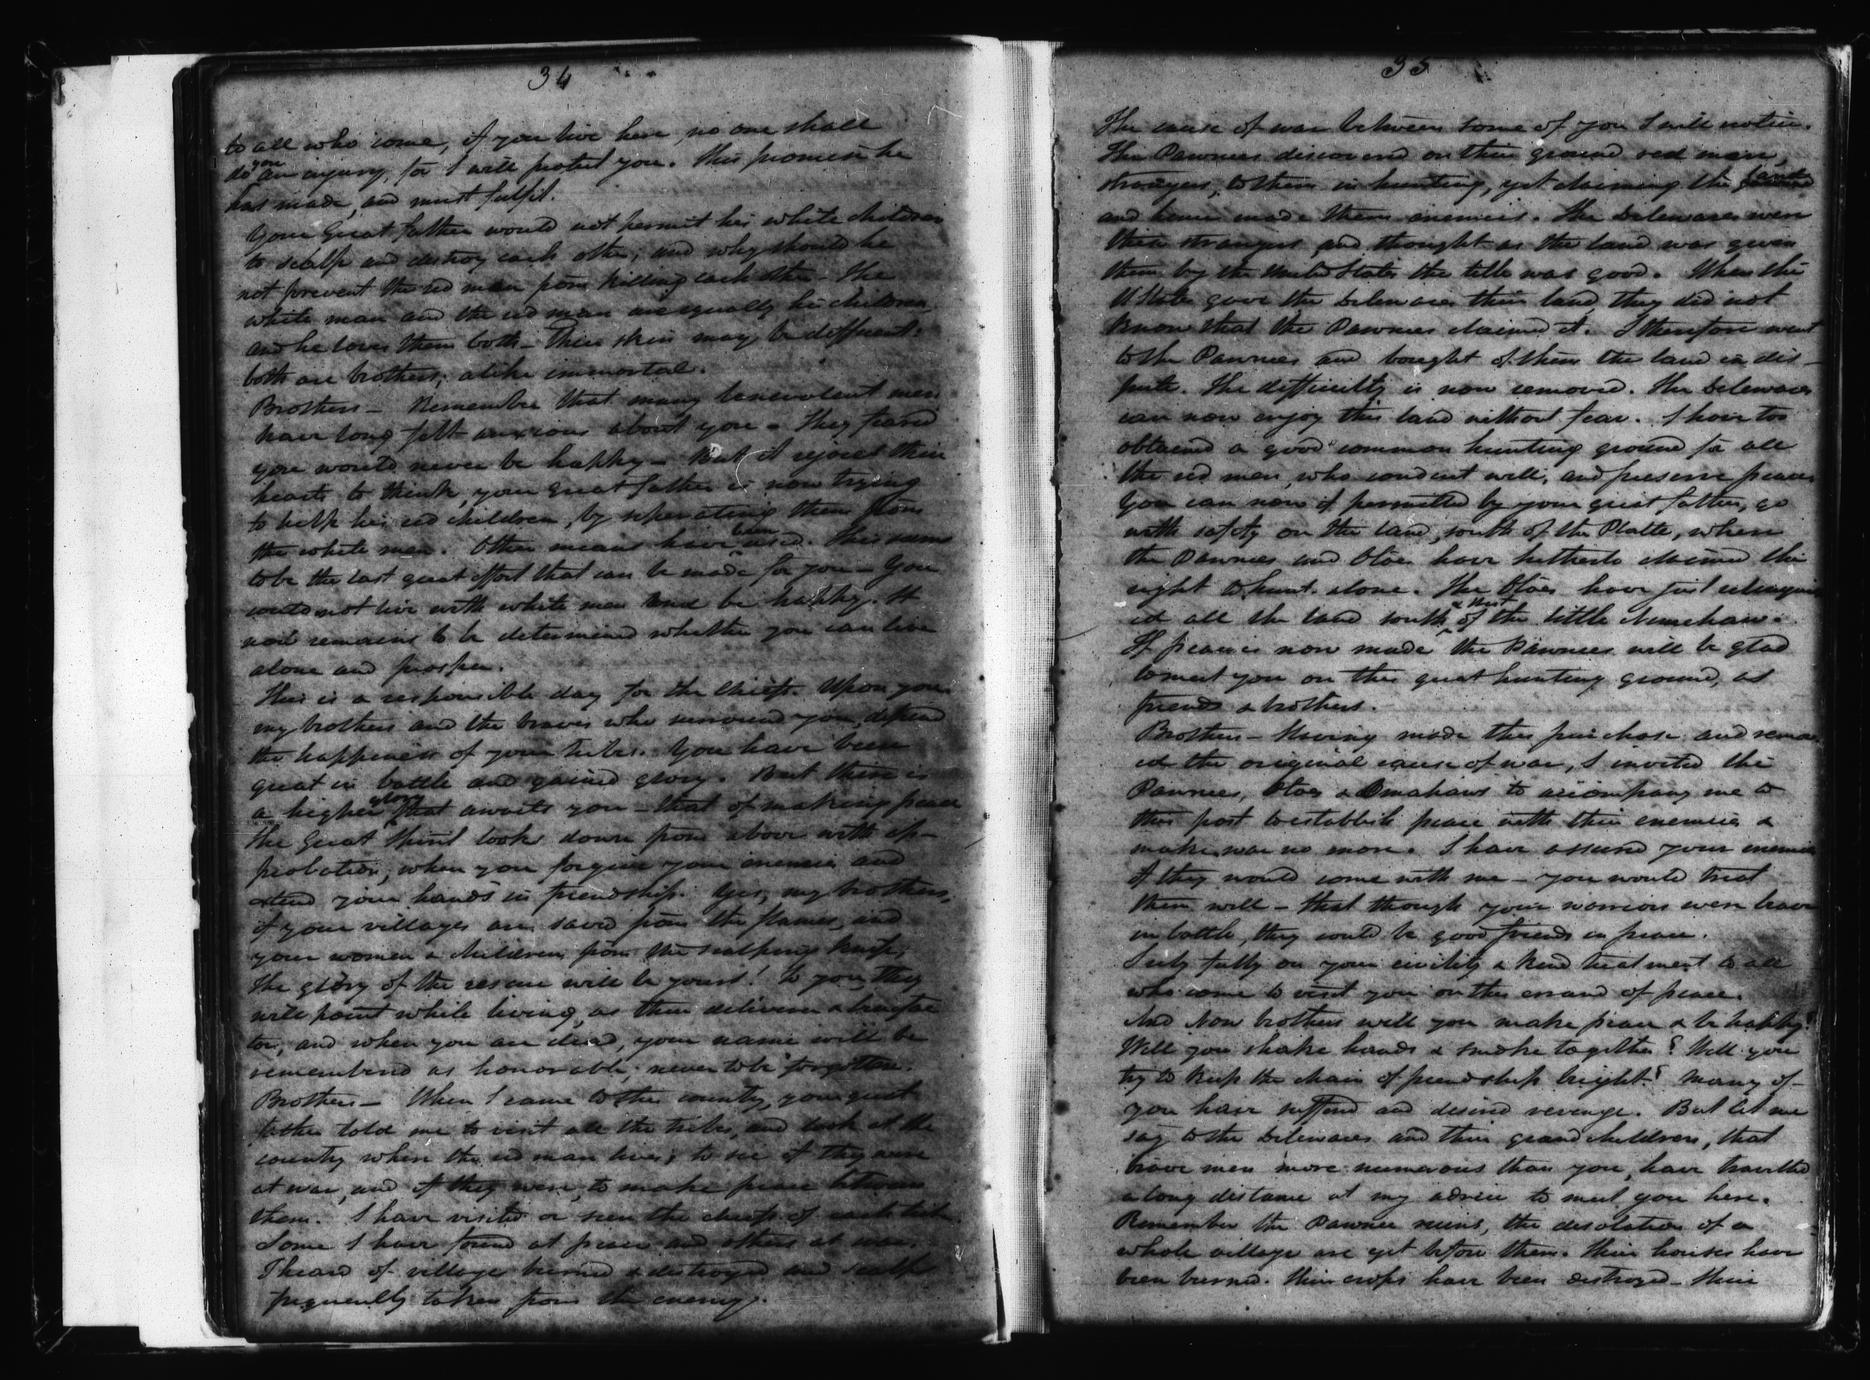 34
to all who come, if you live here, no one shall
do you an injury, for I will protect you. This promise he
has made, and must fulfil.
Your Great father would not permit his white children
to scalp and destroy each other; and why should he
not prevent the red man from killing each other - The
white man and the red man are equally his children,
and he loves them both - Their skin may be different:
both are brothers; alike immortal.
Brothers - Remember that many benevolent men
have long felt anxious about you - They feared
you would never be happy - But it rejoices their
hearts to think, your great father is now trying
to help his red children, by separating them from
the white men. Other means have been used. This seems
to be the last great effort that can be made for you - You
could not live with white men and be happy. It
now remains to be determined whether you can live
alone and prosper.
This is a responsible day for the Chiefs. Upon you
my brothers and the braves who surround you, depend
the happiness of your tribes. You have been
great in battle and gained glory. But there is
a higher glory that awaits you - that of making peace
The Great Spirit looks down from above with ap-
probation, when you forgive your enemies and
extend your hands in friendship. Yes, my brothers,
if your villages are saved from the flames, and
your women & children from the scalping knife,
the glory of the rescue will be yours! To you, they
will point while living, as their deliverer & benefac
tor, and when you are dead, your name will be
remembered as honorable; never to be forgotten.
Brothers - When I came to this country, your great
father told me to visit all the tribes, and look at the
country where the red man lives; to see if they were
at war, and if they were, to make peace between
them. I have visited or seen the chiefs of each tribe.
Some I have found at peace and others at war.
I heard of villages burned & destroyed and scalps
frequently taken from the enemy.
35
The cause of war between some of you I will notice.
The Pawnees discovered on their ground red men,
strangers, to them in hunting, yet claiming the land
and hence made them enemies. The Delawares were
these strangers and thought as the land was given
them by the United States the title was good. When the
U States gave the Delawares their land, they did not
know that the Pawnees claimed it. I therefore went
to the Pawnees and bought of them the land in dis-
pute. The difficulty is now removed. The Delawares
can now enjoy this land without fear. I have too
obtained a good common hunting ground for all
the red men, who conduct well, and preserve peace
You can now if permitted by your great father, go
with safety on the land, south of the Platte, where
the Pawnees and Otoes have hitherto claimed the
right to hunt alone. The Otoes have just relinquish
ed all the land south & West of the little Nemehaw.
If peace is now made the Pawnees will be glad
to meet you on this great hunting ground, as
friends & brothers.
Brothers - Having made this purchase and remov
ed the original cause of war, I invited the
Pawnees, Otoes & Omahaws to accompany me to
this post to establish peace with their enemies &
make war no more. I have assured your enemies
if they would come with me - you would treat
them well - that though your warriors were brave
in battle, they could be good friends in peace.
I rely fully on your civility & kind treatment to all
who come to visit you on this errand of peace.
And Now brothers will you make peace & be happy?
Will you shake hands & smoke together? Will you
try to keep the chain of friendship bright? Many of
you have suffered and desired revenge. But let me
say to the Delawares and their grandchildren, that
brave men more numerous than you, have travelled
a long distance at my advice to meet you here.
Remember the Pawnee ruins, the desolation of a
whole village are yet before them. Their houses have
been burned. Their crops have been destroyed - their